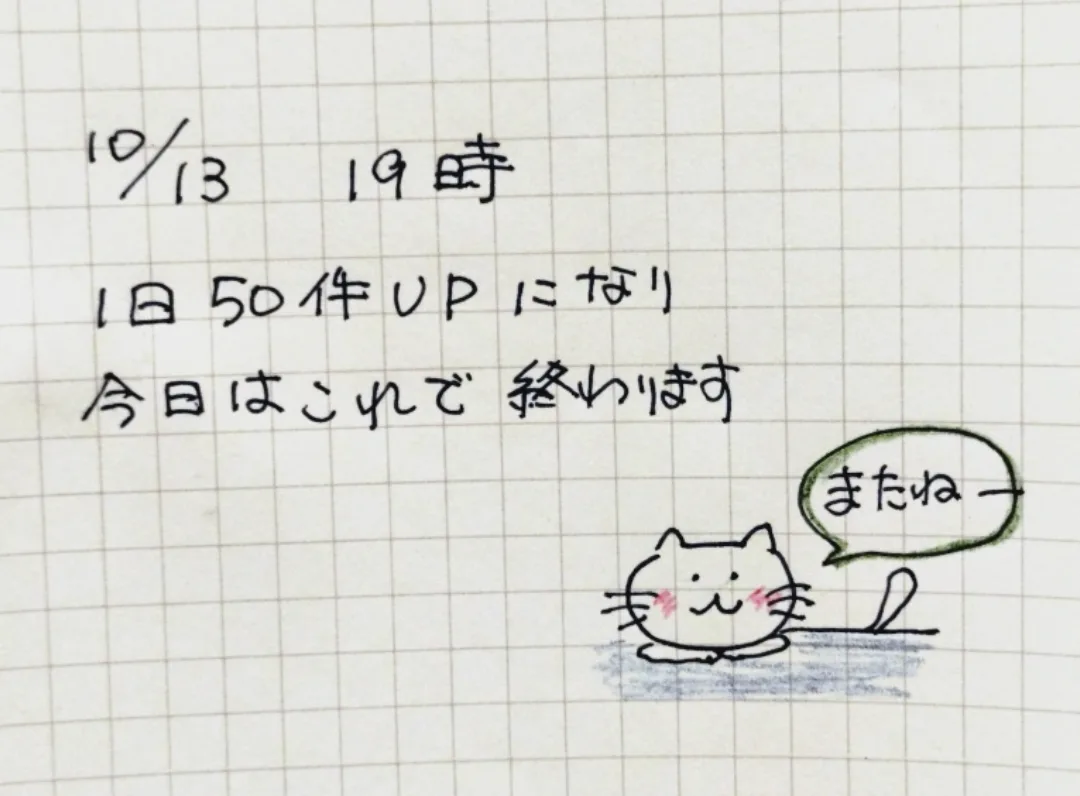 10/13 19時
1日50件UPになり
今日はこれで終わります
またねー